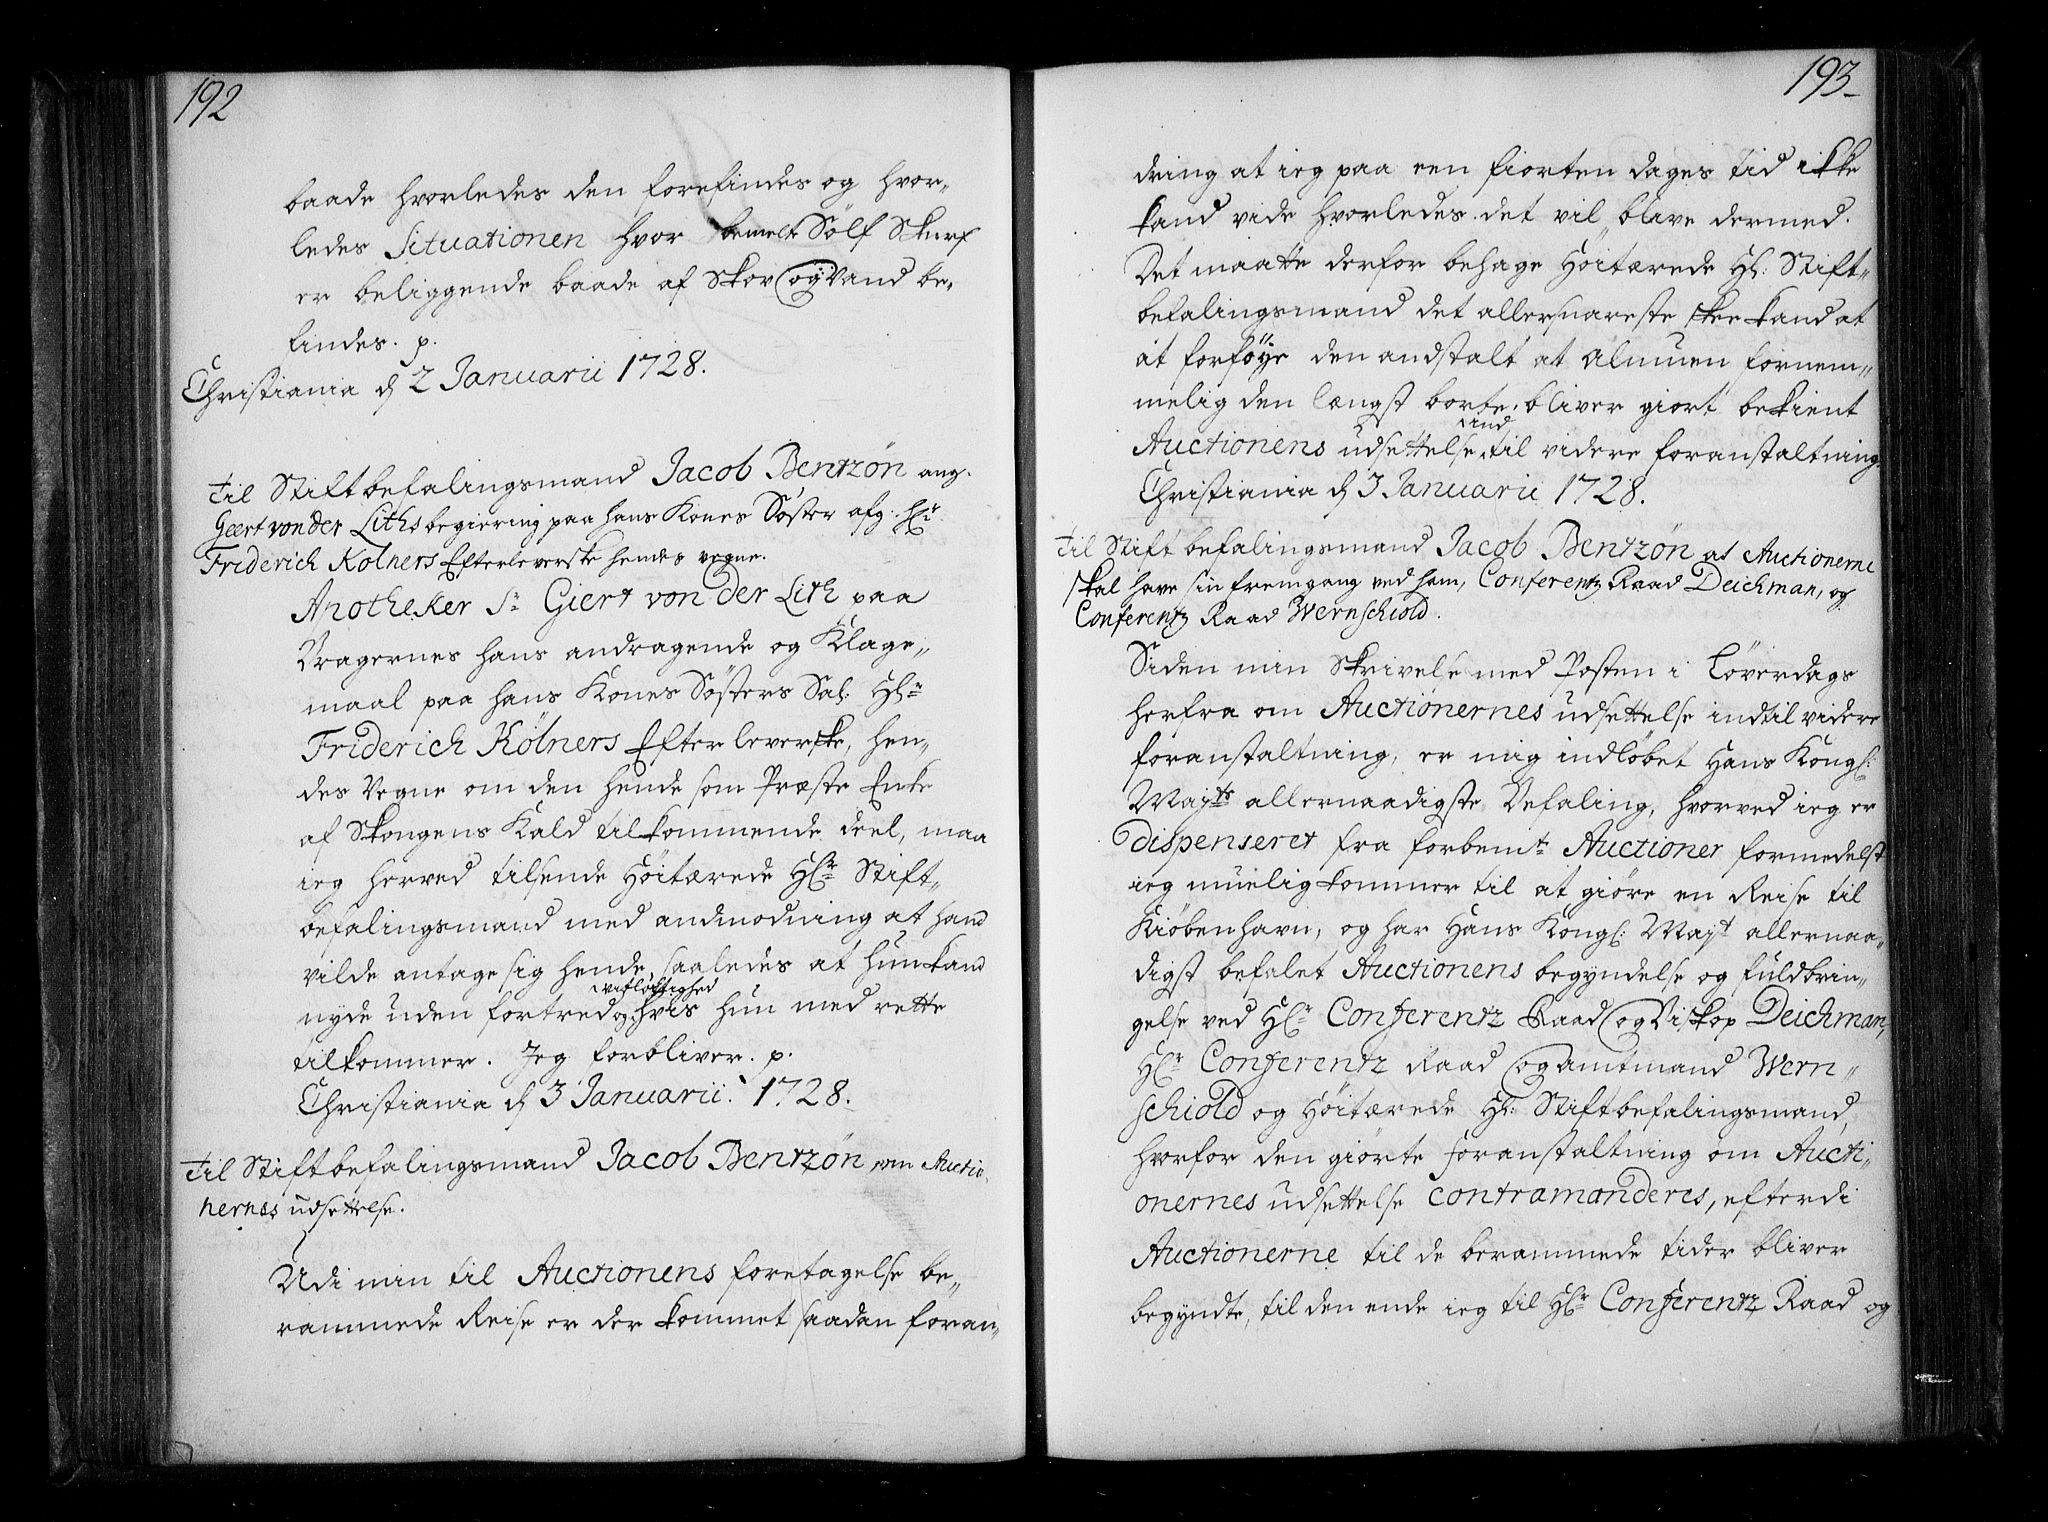 192
baade hvorledes den forefindes og hvor„
ledes Situationen hvor bemelte Sølf Skurf
er beliggende baade af Skov og Vand be„
findes. p.
Christiania d 2 Januarii 1728.
Til Stiftbefalingsmand Jacob Bentzøn ang.
Geert von der Liths begiering paa hans Kones Søster afg. Hr
Friderich Kølners Efterleverske hendes vegne.
Apotheker Sr Giert von der Lith paa
Bragernes hans andragende og Klage„
maal paa hans Kones Søsters Sal. Hr
Friderich Kölners Efterleverske, hen„
des Vegne om den hende som Præste Enke
af Skongens Kald tilkommende deel, maa
ieg herved tilsende Høitærede Hr Stift„
befalingsmand med anmodning at hand
vilde antage sig hende, saaledes at hun kand
nyde uden fortred og vitløftighed hvis hun med rette
tilkommer. Jeg forbliver. p.
Christiania d 3 Januarii. 1728.
Til Stiftbefalingsmand Jacob Bentzøn om Auctio„
nernes udsettelse.
Udi min til Auctionens foretagelse be„
rammede Reise er der kommet saadan foran„
193
dring at ieg paa een fiorten dages tid ikke
kand vide hvorledes det vil blive dermed.
Det maatte derfor behage Høitærede Hr: Stift„
befalingsmand det allersnareste skee kand at
at forføÿe den andstalt at Almuen fornem„
melig den længst borte bliver giort bekient
Auctionens udsettelse ind til videre foranstaltning.
Christiania d 3 Januarii 1728.
Til Stiftbefalingsmand Jacob Bentzøn at Auctionerne
skal have sin fremgang ved ham, Conferentz Raad Deichman, og
Conferentz Raad Wernschiold.
Siden min Skrivelse med Posten i Løverdags
herfra om Auctionernes udsettelse indtil videre
foranstaltning, er mig indløbet Hans Kongl:
Mayts allernaadigste Befaling, hvorved ieg er
dispenseret fra forbemte Auctioner formedelst
ieg muelig kommer til at giøre en Reise til
Kiøbenhavn, og har Hans Kongl: Mayt allernaa„
digst befalet Auctionens begyndelse og fuldbrin„
gelse ved Hr Conferentz Raad og Biskop Deichman,
Hr Conferentz Raad og Amtmand Wern„
schiold og Høitærede Hr: Stiftbefalingsmand,
hvorfor den giørte foranstaltning om Aucti„
onernes udsettelse contramanderes, efterdi
Auctionerne til de berammede tider bliver
begyndte, til den ende ieg til Hr Conferentz Raad og